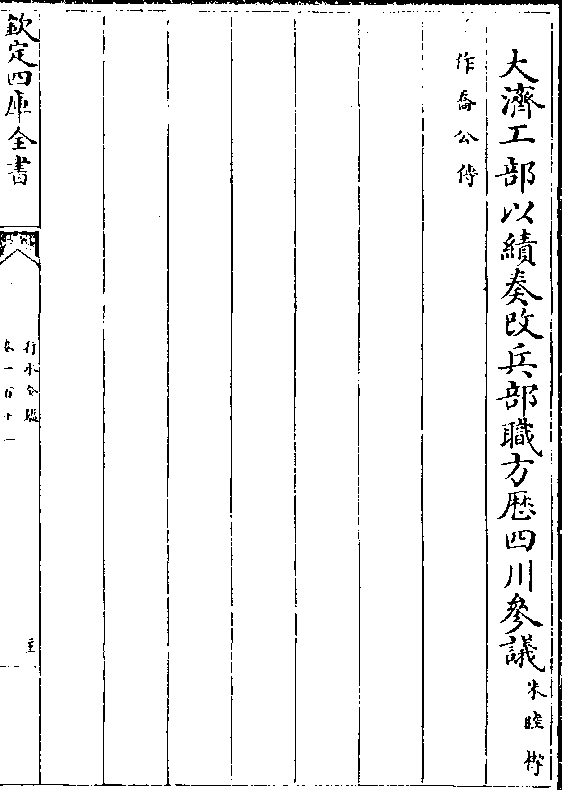 大濟工部以績奏改兵部職方歷四川參議朱睦㮮
作喬公傳
欽定四庫全書
行水金鑑
卷一百十一